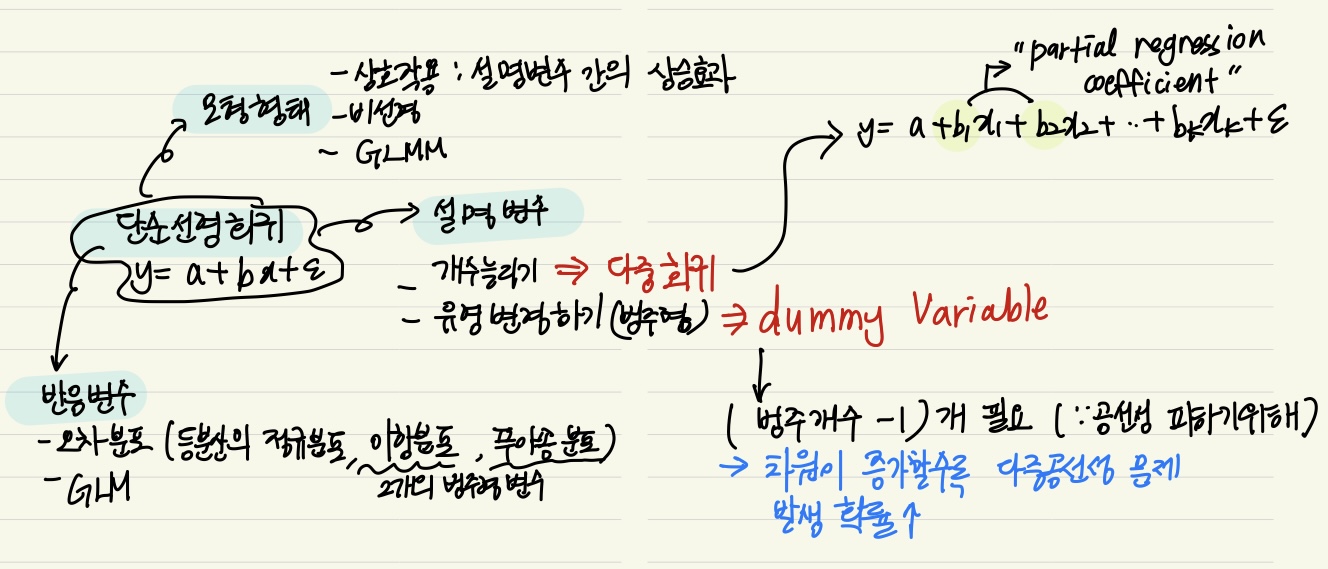 - 상호작용 : 설명변수 간의 상승효과
모형형태 - 비선형
~ GLMM
"partial regression
coefficient"
y = a + b₁x₁ + b₂x₂ + ‥ + bₖxₖ + ε
단순선형회귀
y = a + bx + ε
설명변수
- 개수늘리기 ⇒ 다중회귀
- 유형변경하기 (범주형) ⇒ dummy Variable
(범주개수 -1) 개 필요 (∵공선성 피하기위해)
→ 차원이 증가할수록 다중공선성 문제
발생 확률↑
반응변수
- 오차분포 (등분산의 정규분포, 이항분포, 푸아송분포)
2개의 범주형변수
- GLM